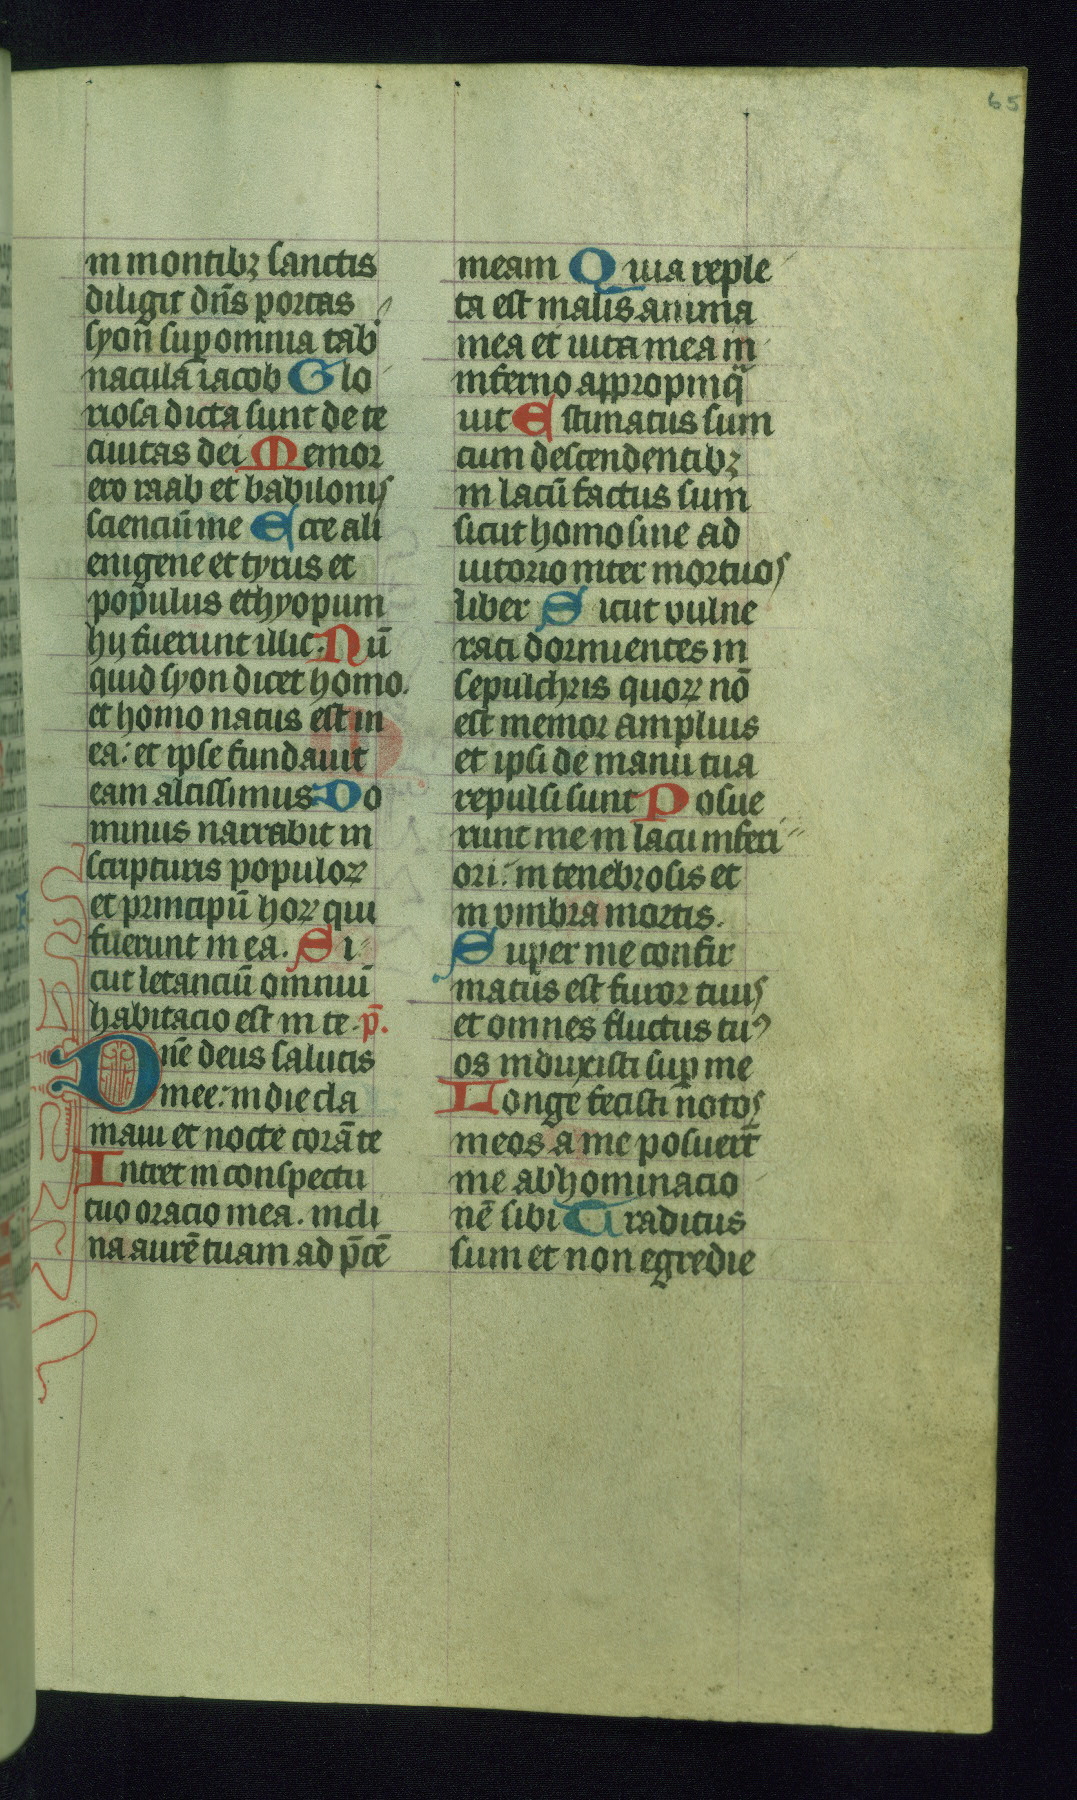 65
in montibꝫ sanctis
diligit dn̄s portas
syon sup̱ omnia tab̓
nacula iacob Glo
riosa dicta sunt de te
ciuitas dei Memor
ero raab et babilonis
sciencium̄ me Ecce ali
enigene et tyrus et
populus ethyopum
hij fuerunt illic. Nū
quid syon dicet homo.
et homo natus est in
ea: et ipse fundauit
eam altissimus Do
minus narrabit in
scripturis populoꝝ
et principū hoꝝ qui
fuerunt in ea. Si
cut letanciū omniū
habitacio est in te. p̄.
Dn̄e deus salutis
mee: in die cla
maui et nocte corā te
Intret in conspectu
tuo oracio mea. incli
na aurē tuam ad p̄cē
meam Quia reple
ta est malis anima
mea et uita mea in
inferno appropinq̄
uit Estimatus sum
cum descendentibꝫ
in lacū factus sum
sicut homo sine ad
iutorio inter mortuos
liber Sicut vulne
rati dormientes in
sepulchris quoꝝ nō
est memor amplius
et ipsi de manu tua
repulsi sunt Posue
runt me in lacu inferi
ori: in tenebrosis et
in vmbra mortis.
Super me confir
matus est furor tuus
et omnes fluctus tu
os induxisti sup̱ me
Longe fecisti notos
meos a me posuerūt
me abhominacio
nē sibi Traditus
sum et non egredie